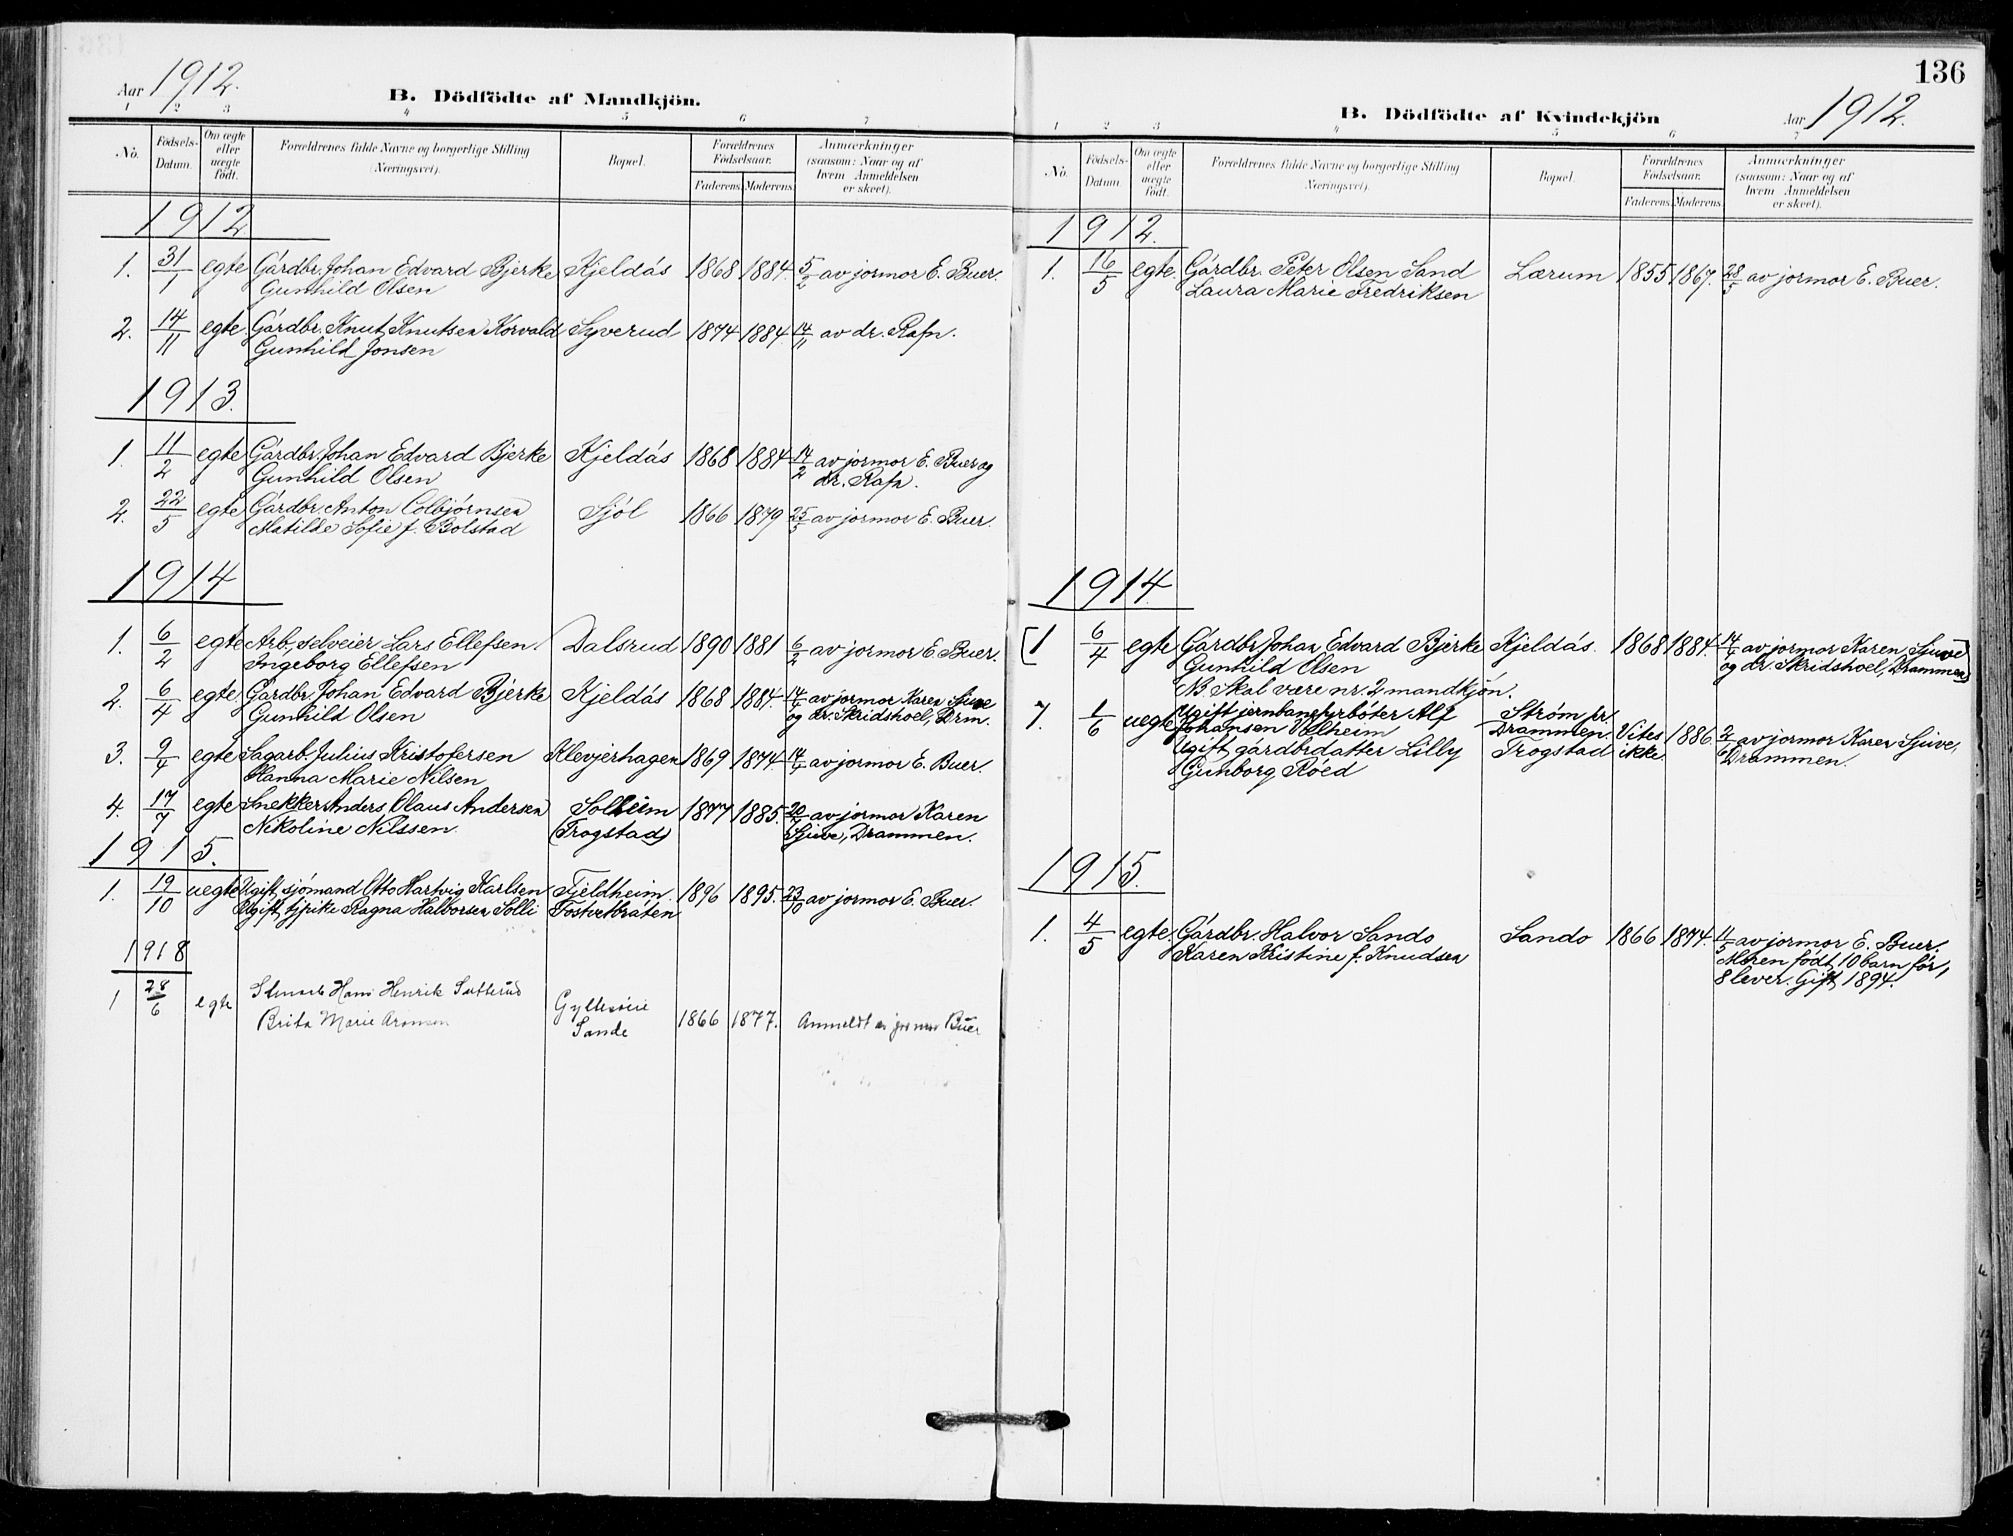 Aar 1912.
B. Dödfödte af Mandkjön.
1 2 3 4 5 6 7
No. Fødsels-Datum. Om ægte eller uægte født. Forældrenes fulde Navne og borgerlige Stilling (Næringsvei). Bopæl. Forældrenes Fødselsaar. Faderens. Moderens. Anmærkninger (saasom: Naar og af hvem Anmeldelsen er skeet).
1912
1. 31/1 egte Gårdbr. Johan Edvard Bjerke Kjeldås 1868 1884. 5/2 av jormor E. Buer.
Gunhild Olsen
2. 14/11 egte Gårdbr. Knut Knutsen Korvald Syverud 1874 1884. 14/11 av dr. Rafn.
Gunhild Jonsen
1913.
1. 11/2 egte Gårdbr. Johan Edvard Bjerke Kjeldås 1868 1884 17/2 av jormor E. Buer og
Gunhild Olsen dr. Rafn.
2. 22/5 egte Gårdbr. Anton Colbjørnsen Sjøl 1866 1879 25/5 av jormor E. Buer.
Matilde Sofie f. Bolstad
1914
1. 6/2 egte Arb., selveier Lars Ellefsen. Dalsrud 1890 1881 6/2 av jormor E. Buer.
Ingeborg Ellefsen
2. 6/4 egte Gårdbr. Johan Edvard Bjerke Kjeldås 1868 1884. 14/4 av jormor Karen Sjuve
Gunhild Olsen og dr. Skridshoel, Drm.
3. 9/4 egte Sagarb. Julius Kristofersen Klevjerhagen 1869 1874. 14/4 av jormor E. Buer.
Hanna Marie Nilsen
4. 17/7 egte Snekker Anders Olaus Andersen Solheim 1877 1885. 20/7 av jormor Karen
Nikoline Nilssen. (Trogstad) Sjuve, Drammen.
1915.
1. 19/10 uegte Ugift sjømand Otto Hartvig Karlsen Fjeldheim. 1896 1895. 23/10 av jormor E. Buer.
Ugift tjpike Ragna Halvorsen Solli Tostvetbråten
1918
1 28/6 egte Hans Henrik Gyltesøie
Brita Marie Aronsen Sande 1866 1877. Anmeldt av jormor Buer
136
B. Dödfödte af Kvindekjön
Aar 1912.
1 2 3 4 5 6 7
No. Fødsels-Datum. Om ægte eller uægte født. Forældrenes fulde Navne og borgerlige Stilling (Næringsvei). Bopæl. Forældrenes Fødselsaar. Faderens. Moderens. Anmærkninger (saasom: Naar og af hvem Anmeldelsen er skeet).
1912.
1. 16/5 egte. Gårdbr. Peter Olsen Sand Lærum 1855 1867. 28/5 av jormor E. Buer.
Laura Marie Fredriksen
1914.
[1 6/4 egte Gårdbr. Johan Edvard Bjerke Kjeldås. 1868 1884. 14/4 av jormor Karen Sjuve
Gunhild Olsen og dr. Skridshoel, Drammen]
NB Skal være nr. 2 mandkjøn.
7. 1/6 uegte Ugift jernbanefyrbøter Alf Strøm pr.
Johansen Volheim Drammen. Vites 1886. 2/6 av jormor Karen Sjuve,
Ugift gårdbrdatter Lilly Trogstad ikke. Drammen.
Gunborg Røed
1915.
1. 4/5 egte. Gårdbr. Halvor Sando Sando 1866 1874. 11/5 av jormor E. Buer.
Karen Kristine f. Knudsen Moren født 10 barn før,
8 lever. Gift 1894.